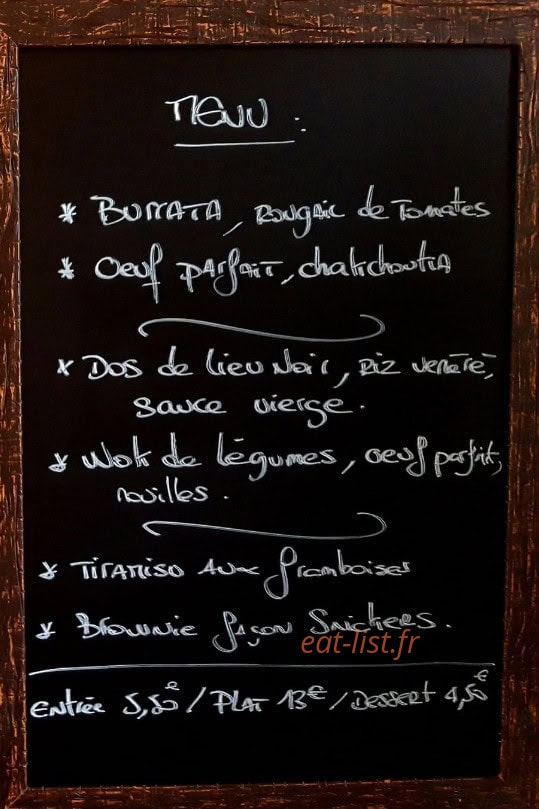 MENU :
* BURRATA, ROUGAIL de Tomates
* Oeuf PARFAIT, chakchouka
* Dos de lieu Noir, Riz venéré,
sauce vierge.
* Wok de légumes, oeuf parfait,
nouilles.
* TIRAMISO AUX framboises
* Brownie façon Snickers.
eat-list.fr
Entrée 5,50€ / PLAT 13€ / Dessert 4,50€